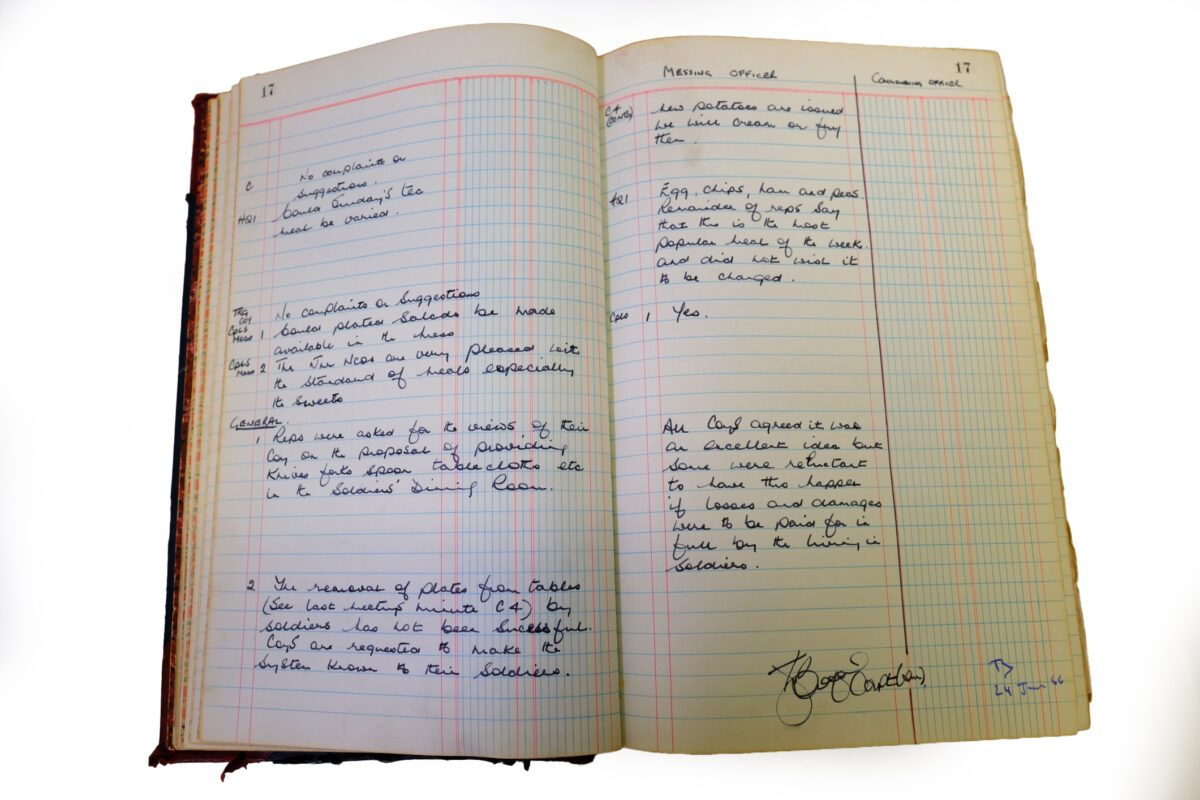 17
C No complaints or
Suggestions.
HQ1 Could Sunday's tea
meal be varied.
TRG
COY No complaints or Suggestions
CPLS
MESS 1 Could plated Salads be made
available in the mess
CPLS
MESS 2 The Jnr NCOs are very pleased with
the standard of meals especially
the sweets
GENERAL.
1 Reps were asked for the views of their
Coy on the proposal of providing
Knives forks spoon tablecloths etc
in the Soldiers' Dining Room.
2 The removal of plates from tables
(See last meetings minute C4) by
soldiers has not been successful.
Coys are requested to make the
System known to their Soldiers.
MESSING OFFICER
COMMANDING OFFICER
17
C4
(CONTD) New potatoes are issued
we will cream or fry
them.
HQ1 Egg, chips, ham and peas.
Remainder of reps say
that this is the most
popular meal of the week.
and did not wish it
to be changed.
CPLS 1 Yes.
All Coys agreed it was
an excellent idea but
some were reluctant
to have this happen
if losses and damages
were to be paid for in
full by the living in
soldiers.
Capt
24 Jun 66